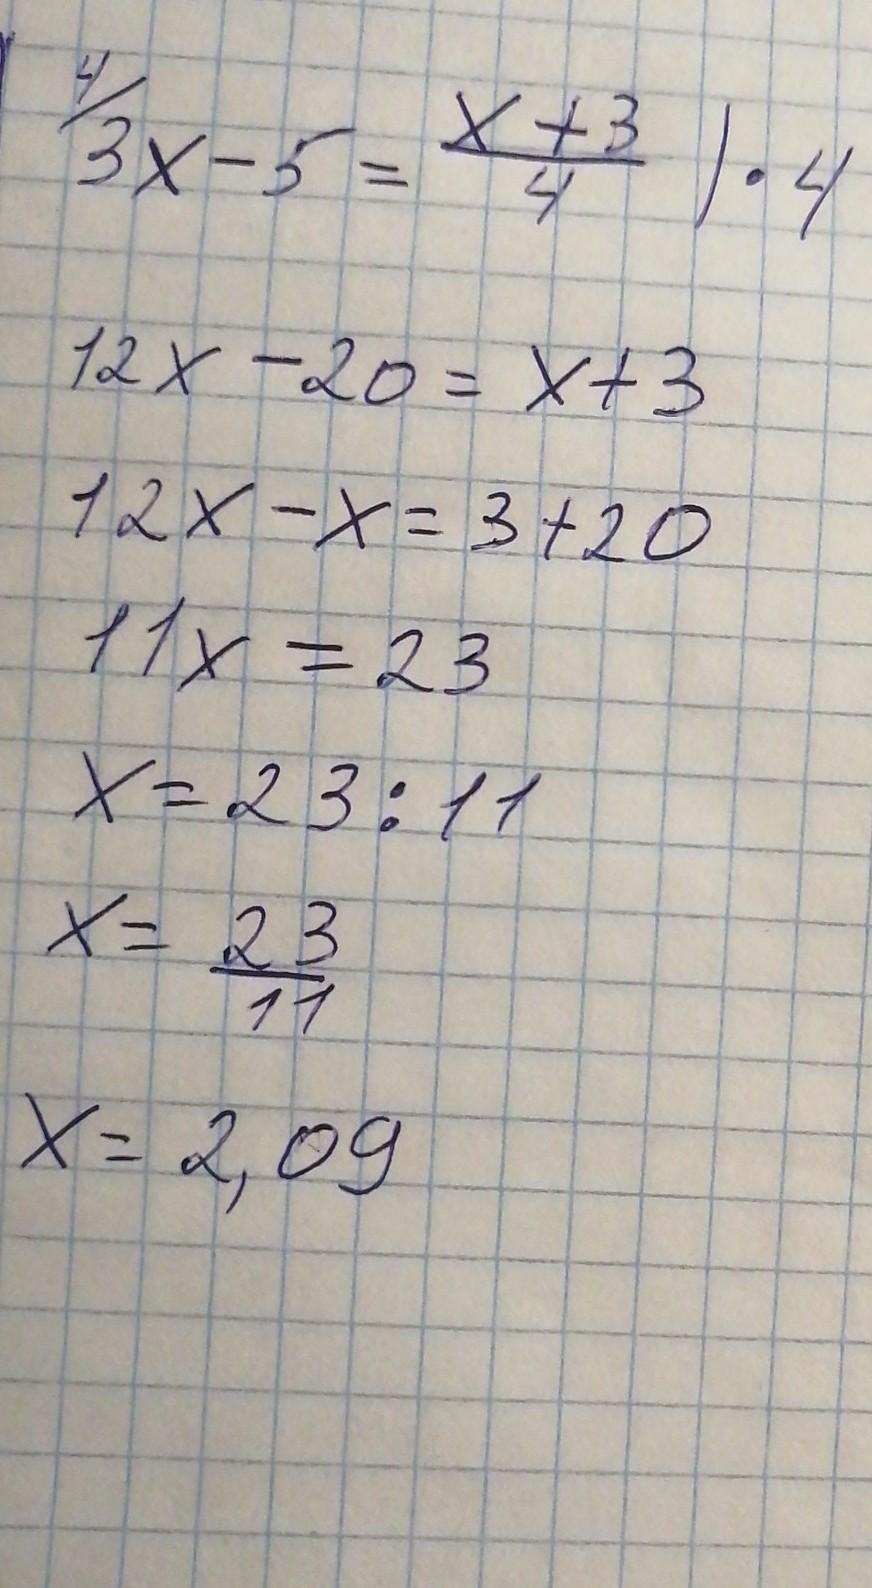 4/ 3x - 5 = (x + 3)/4 | · 4
12x - 20 = x + 3
12x - x = 3 + 20
11x = 23
x = 23 : 11
x = 23/11
x = 2,09